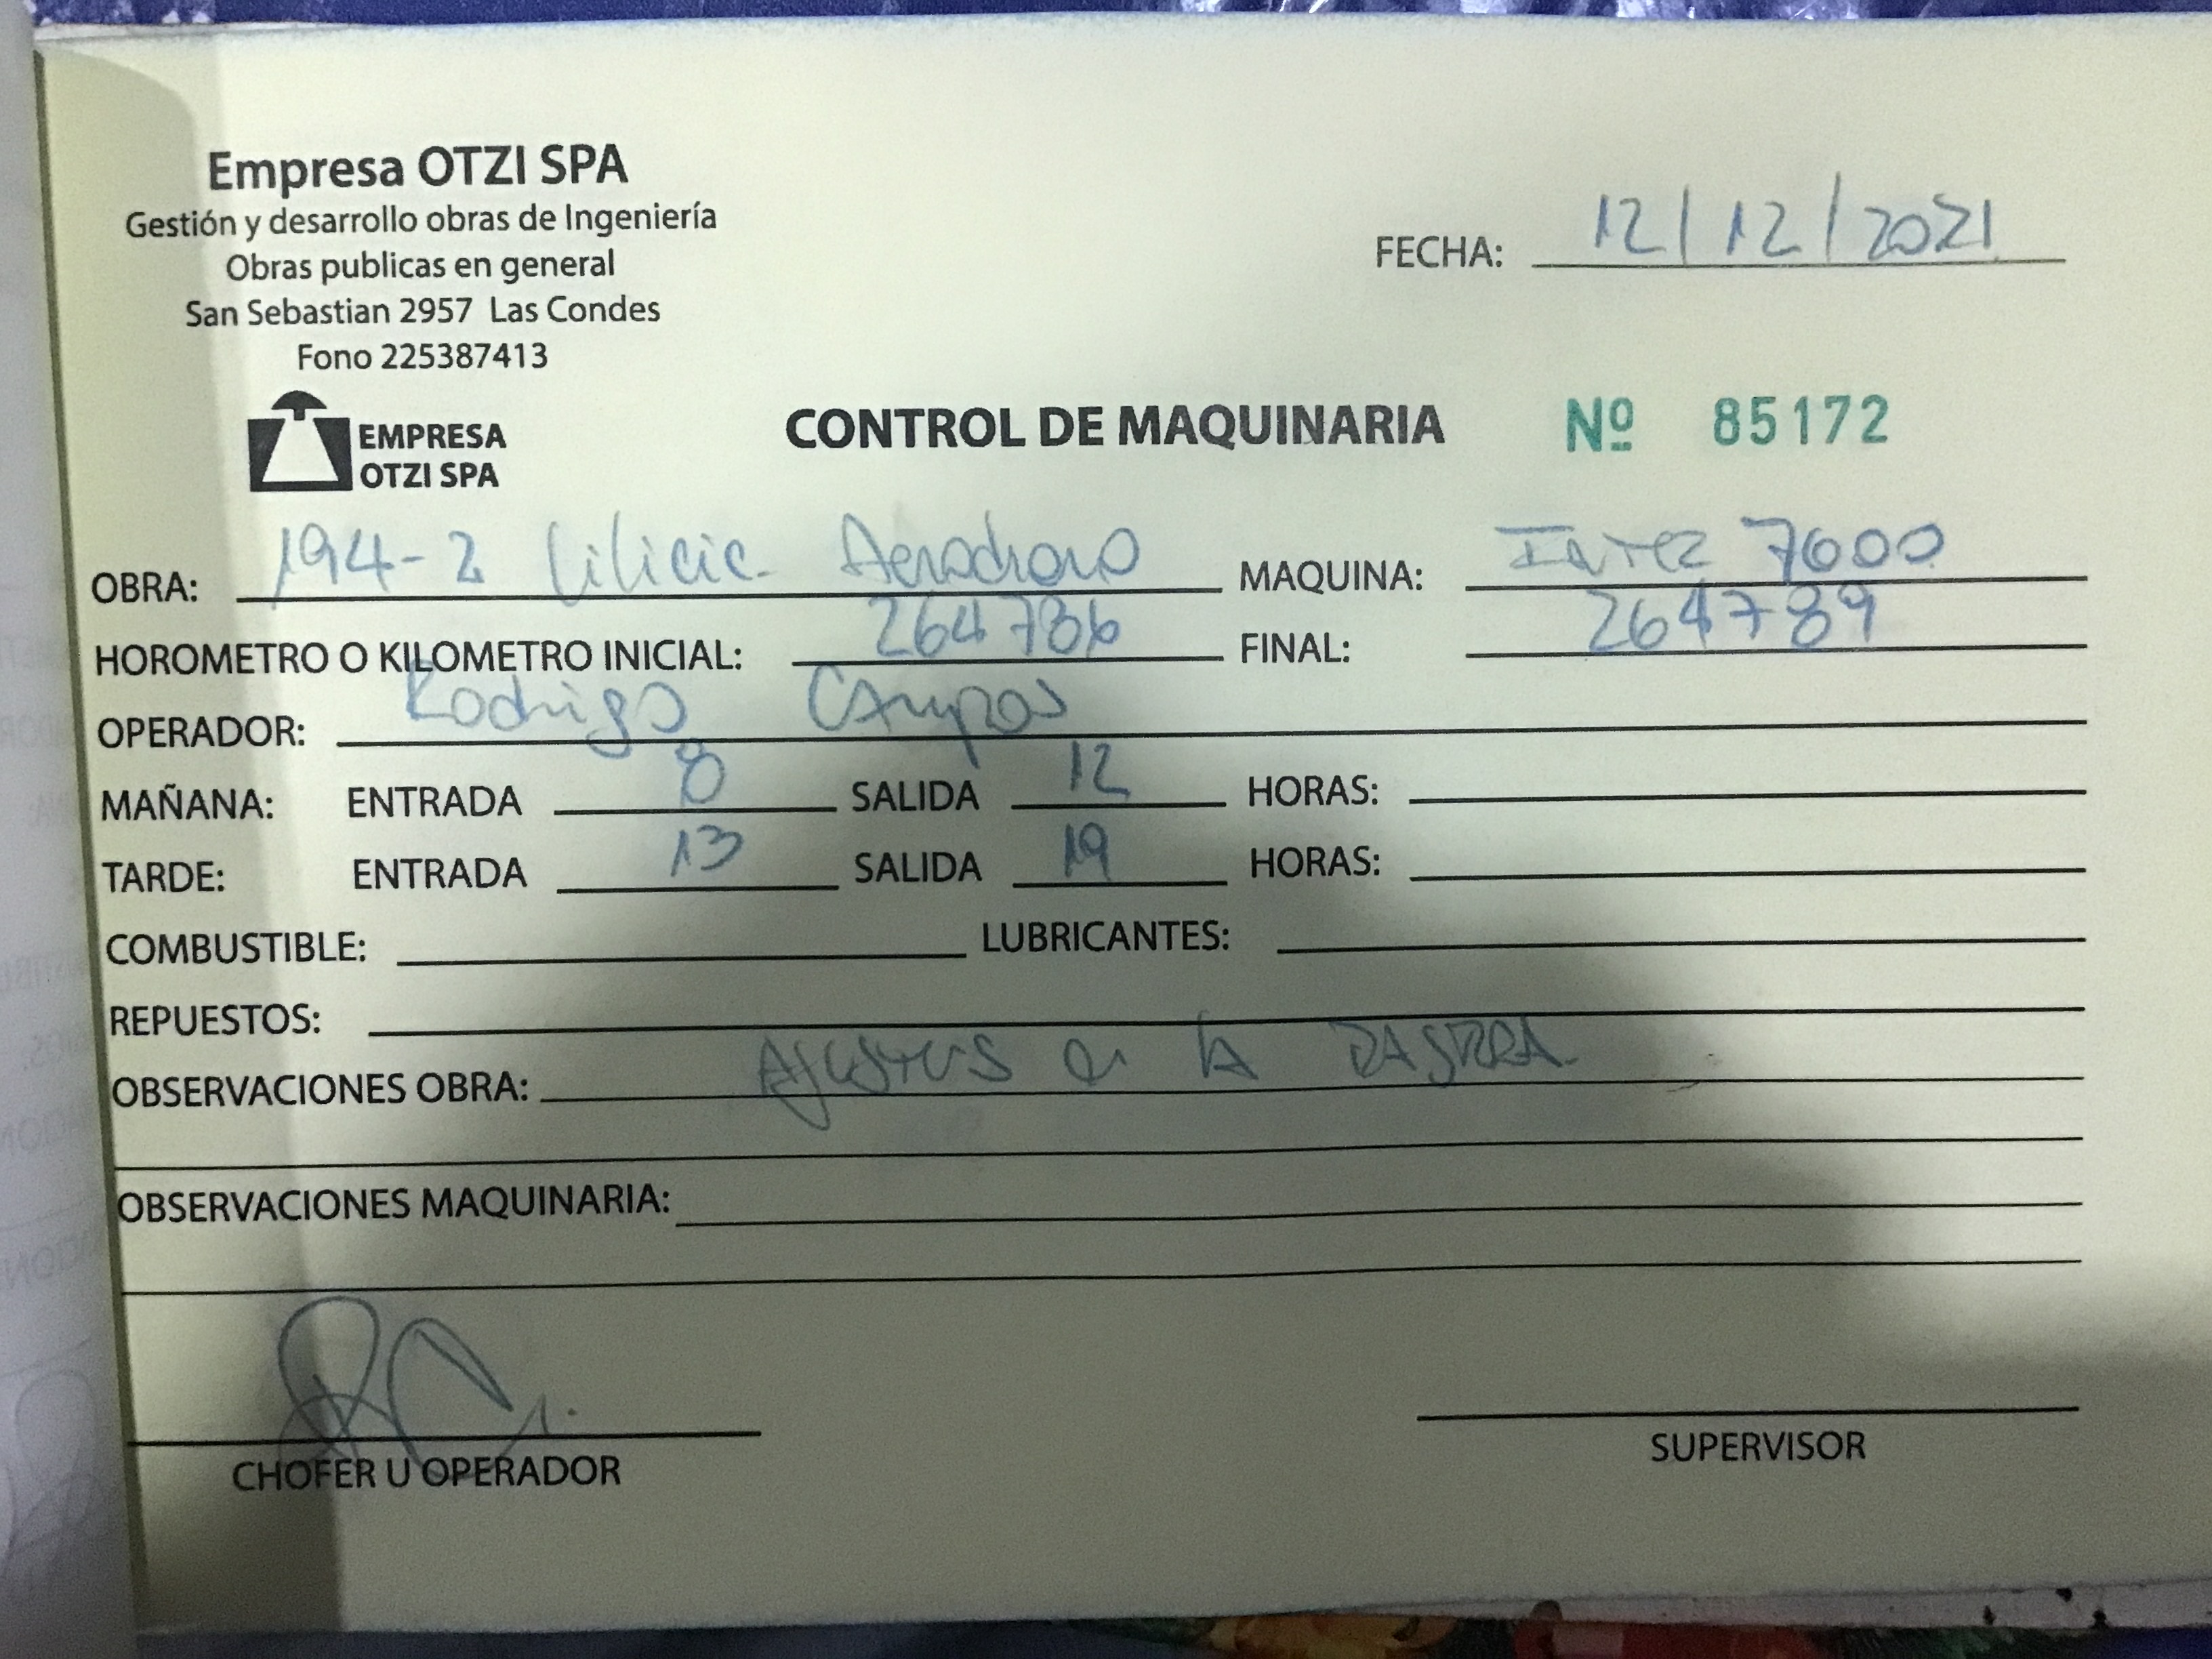 Empresa OTZI SPA
Gestión y desarrollo obras de Ingeniería
Obras publicas en general
San Sebastian 2957 Las Condes
Fono 225387413
FECHA: 12/12/2021
EMPRESA
OTZI SPA
CONTROL DE MAQUINARIA Nº 85172
OBRA: 194-2 Lilicic Aerodromo MAQUINA: 7600
HOROMETRO O KILOMETRO INICIAL: 264786 FINAL: 264789
OPERADOR: Rodrigo Campos
MAÑANA: ENTRADA 8 SALIDA 12 HORAS:
TARDE: ENTRADA 13 SALIDA 19 HORAS:
COMBUSTIBLE: LUBRICANTES:
REPUESTOS:
OBSERVACIONES OBRA: Ajustes a la
OBSERVACIONES MAQUINARIA:
CHOFER U OPERADOR
SUPERVISOR